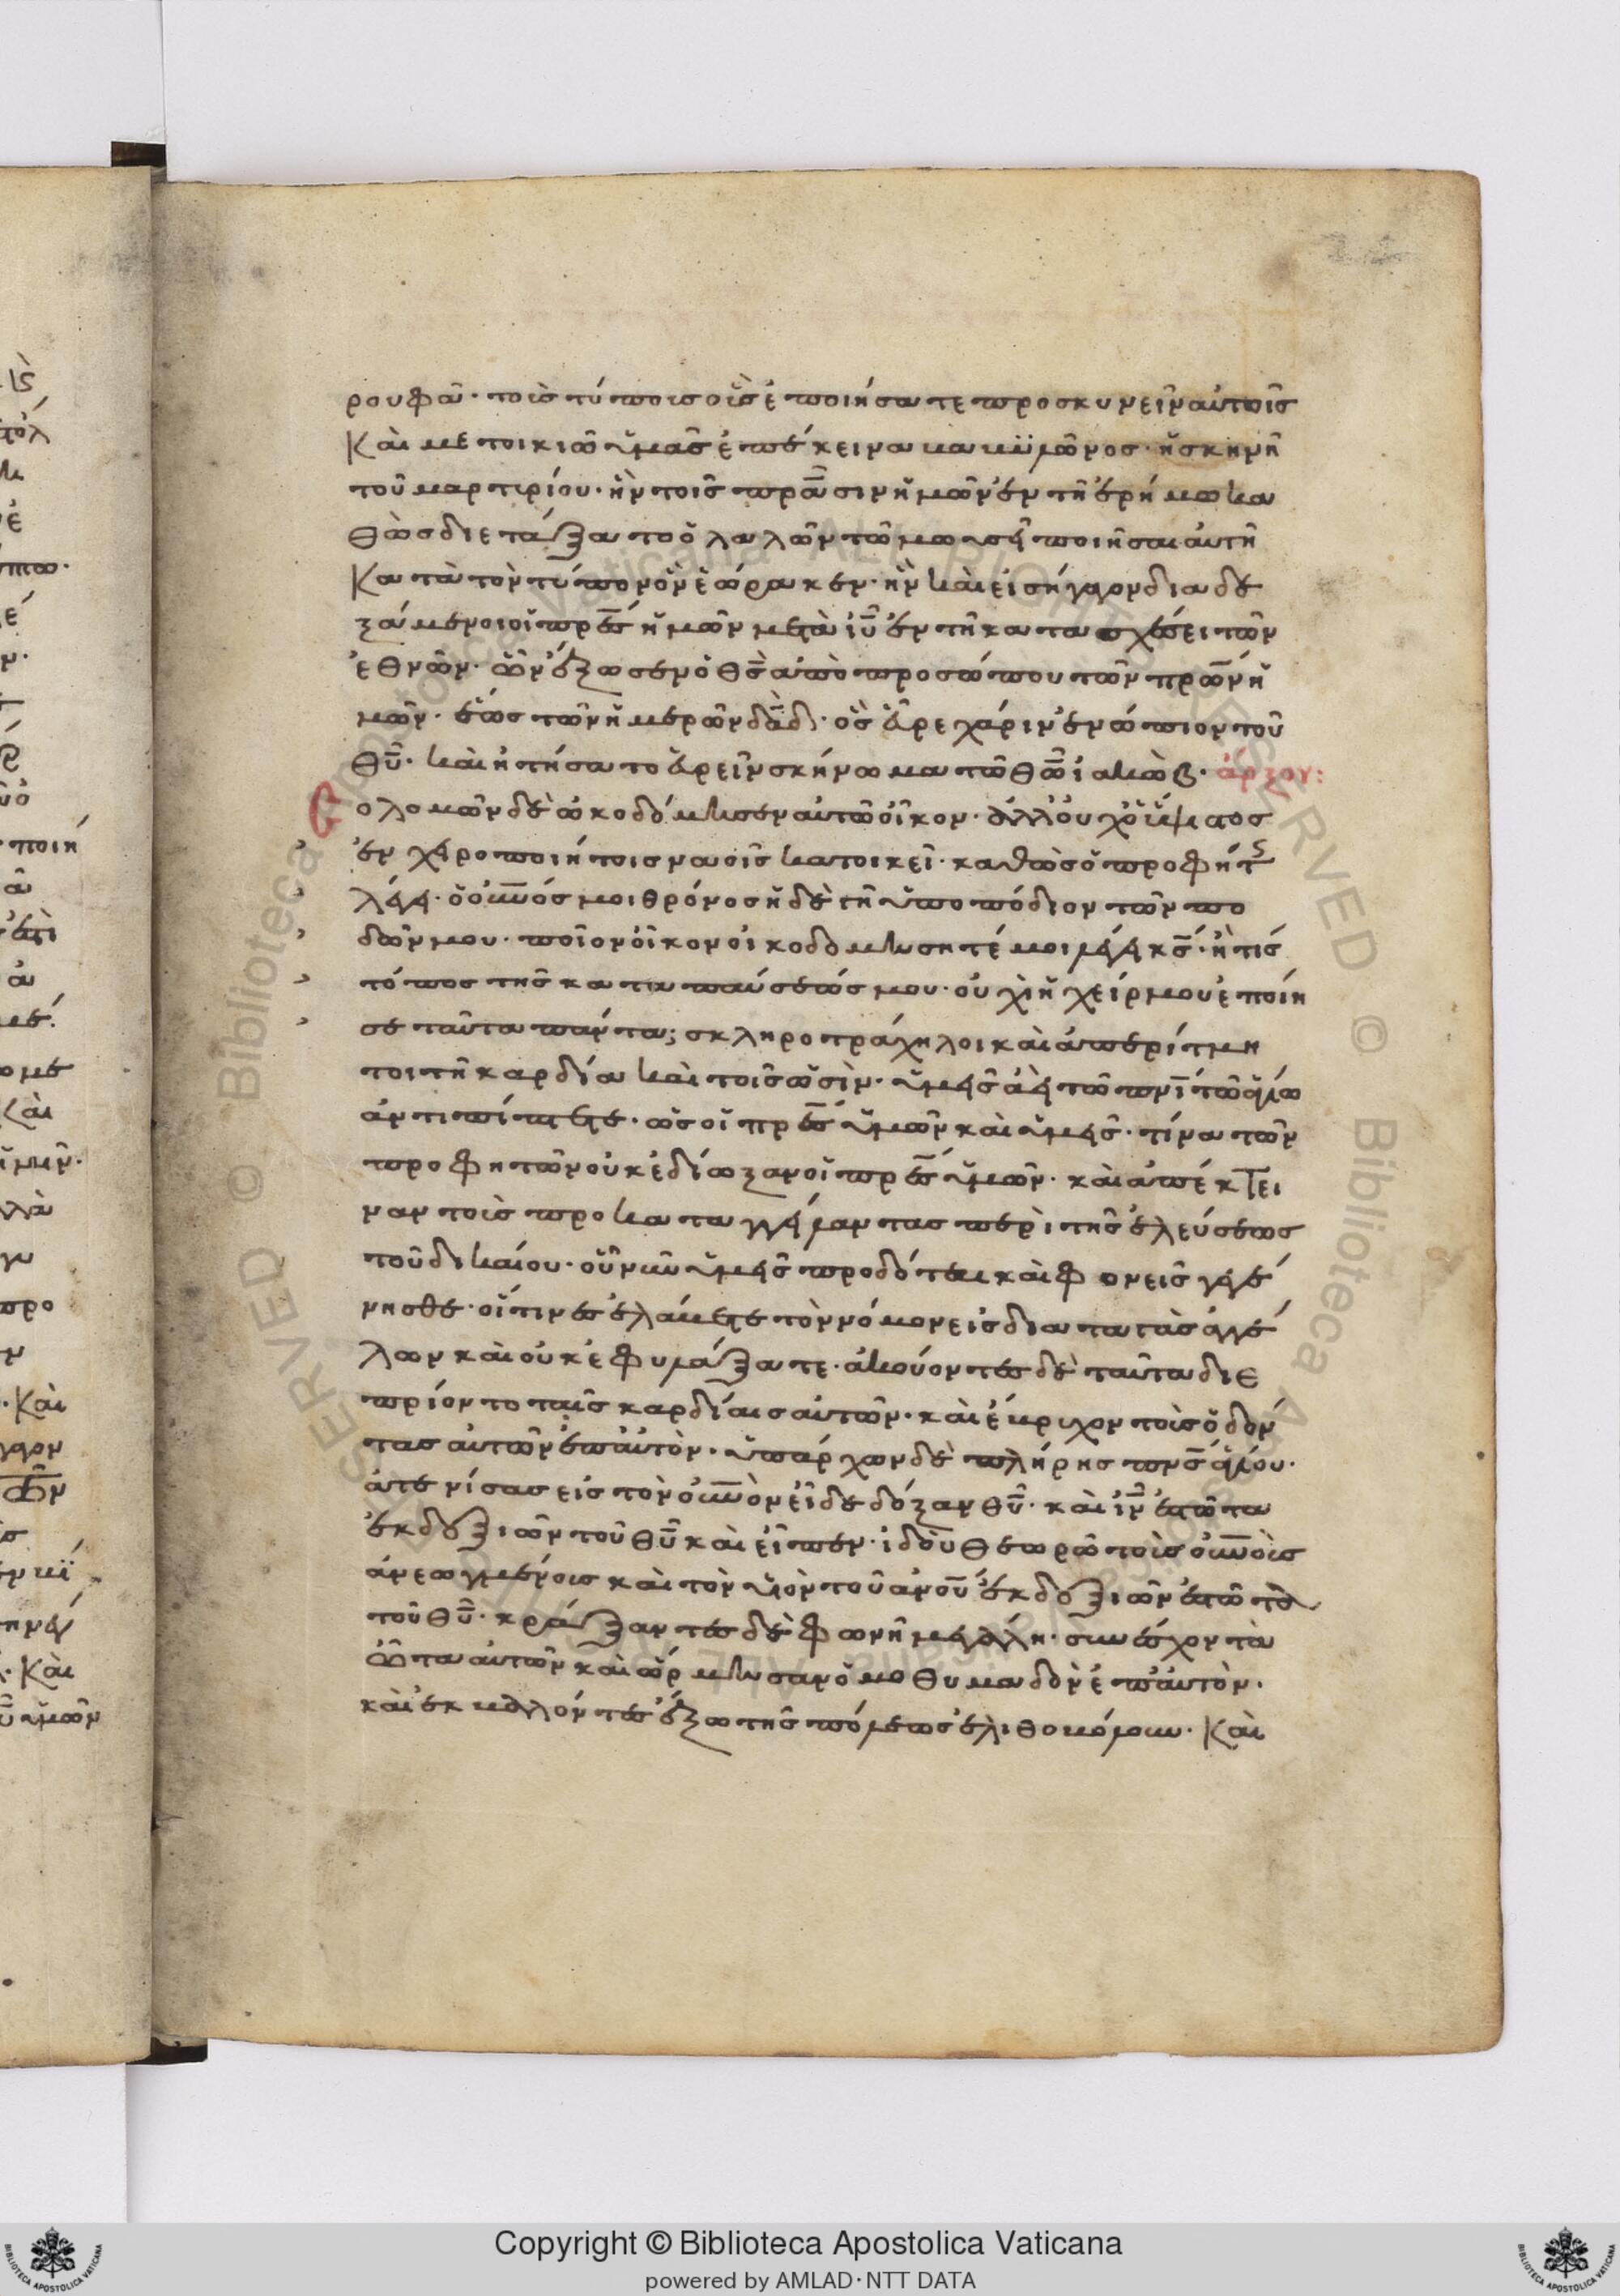 ρουφᾶν· τοὶς τύποις οἷς ἐποιήσατε προσκυνεῖν αὐτοῖς
Καὶ μετοικιῶ ὑμᾶς ἐπέκεινα βαβυλῶνος· ἡ σκηνὴ
τοῦ μαρτιρίου· ἦν τοῖς πρᾶσιν ἡμῶν ἐν τῆ ἐρήμω κα
θὼς διετάξατο ὁ λαλῶν τῶ μωυσῆ ποιῆσαι αὐτὴ
Κατὰ τὸν τύπον ὃν ἑώρακεν· ἣν καὶ εἰσήγαγον διαδε
ξάμενοι οἱ πρες ἡμῶν μετὰ ιυ ἐν τῆ κατασχέσει τῶν
ἐθνῶν· ὧν ἔξωσεν ὁ θς ἀπὸ προσώπου τῶν πρων ἡ
μῶν· ἕως τῶν ἡμερῶν δαδ· ὃς εὗρε χάριν ἐνώπιον τοῦ
θυ· καὶ ἠτήσατο εὑρεῖν σκήνωμα τῶ θω ἰακὼβ· ἀρχου:
Σολομῶν δὲ ὠκοδόμησεν αὐτῶ οἶκον· ἀλλ' οὐχ ὁ ὕψιστος
ἐν χειροποιήτοις ναοῖς κατοικεῖ· καθὼς ὁ προφήτς
λέγει· ὁ οὐνός μοι θρόνος ἡ δὲ γῆ ὑποπόδιον τῶν πο
δῶν μου· ποῖον οἶκον οἰκοδομησητέ μοι λέγει κς· ἢ τίς
τόπος τῆς καταπαύσεώς μου· οὐχὶ ἡ χείρ μου ἐποίη
σε ταῦτα πάντα; σκληροτράχηλοι καὶ ἀπερίτμη
τοι τῆ καρδία καὶ τοῖς ὠσὶν· ὑμεῖς ἀεὶ τῶ πνι τῶ ἁγίω
ἀντιπίπτετε· ὡς οἱ πρες ὑμῶν καὶ ὑμεῖς· τίνα τῶν
προφητῶν οὐκ ἐδίωξαν οἱ πρες ὑμῶν· καὶ ἀπέκτει
ναν τοὶς προκαταγγείλαντας περὶ τῆς ἐλεύσεως
τοῦ δικαίου· οὗ νῦν ὑμεῖς προδόται καὶ φονεῖς γεγέ
νησθε· οἵτινες ἐλάβετε τὸν νόμον εἰς διαταγὰς ἀγγέ
λων καὶ οὐκ ἐφυλάξατε· ἀκούοντες δὲ ταῦτα διε
πρίοντο ταῖς καρδίαις αὐτῶν· καὶ ἔβρυχον τοὶς ὀδόν
τας αὐτῶν ἐπ' αὐτὸν· ὑπάρχων δὲ πλήρης πνς ἁγίου·
ἀτενίσας εἰς τὸν οὐνὸν εἶδε δόξαν θυ· καὶ ιν ἑστῶτα
ἐκ δεξιῶν τοῦ θυ καὶ εἶπεν· ἰδοὺ θεωρῶ τοὶς οὐνοὶς
ἀνεωγμένοις καὶ τὸν υἱὸν τοῦ ανου ἐκ δεξιῶν ἑστῶτα
τοῦ θυ· κράξαντες δὲ φωνῆ μεγάλη· συνέσχον τὰ
ὦτα αὐτῶν καὶ ὥρμησαν ὁμοθυμαδὸν ἐπ' αὐτὸν·
καὶ ἐκβαλόντες ἔξω τῆς πόλεως ἐλιθοβόλουν· Καὶ
Copyright © Biblioteca Apostolica Vaticana
powered by AMLAD·NTT DATA